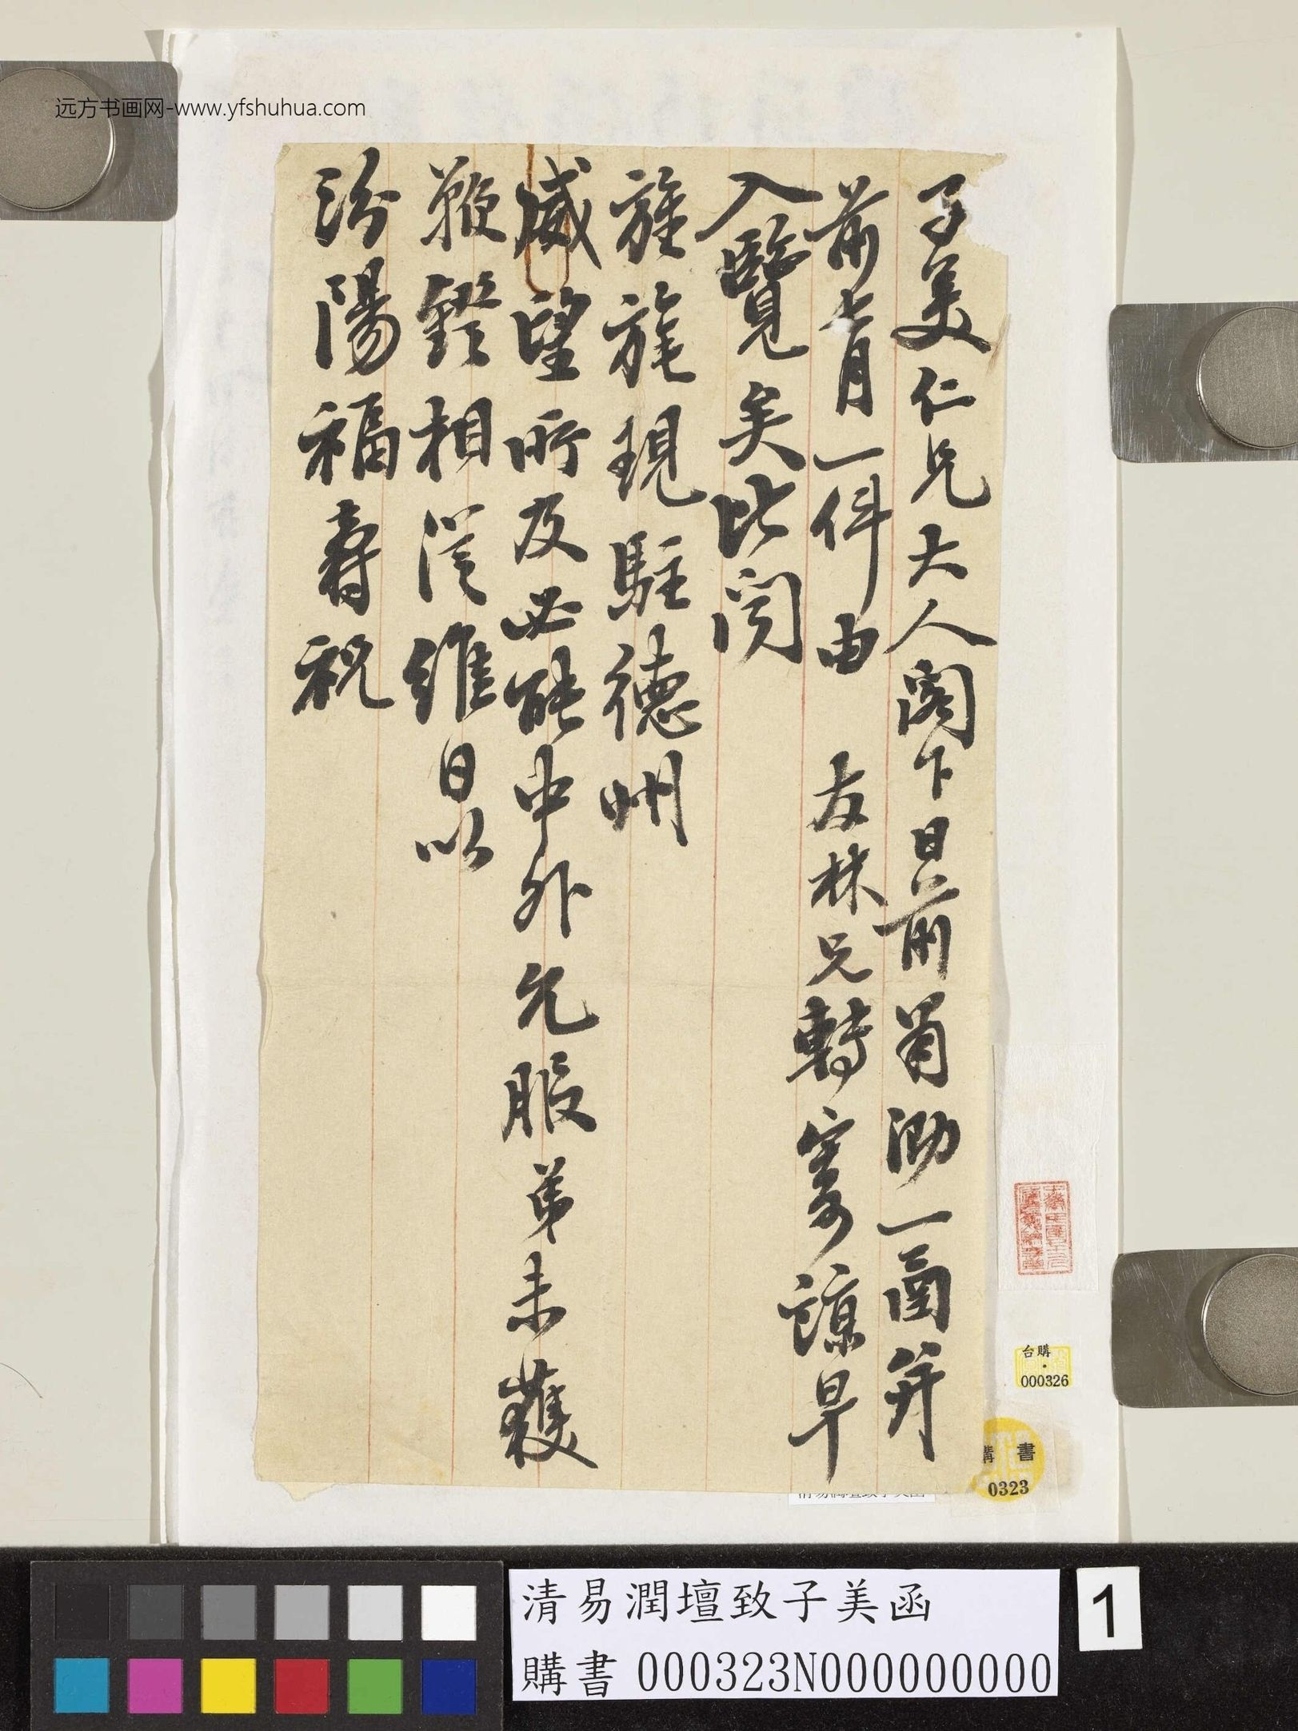 远方书画网-www.yfshuhua.com
子美仁兄大人閣下日前肅泐一函并
前七月一件由 友林兄轉寄諒早
入覽矣比閱
旌旄現駐德州
威望所及必能中外允服弟未獲
鞭鐙相從維日以
汾陽福壽祝
台購
000326
購 書
0323
清易潤壇致子美函
購書 000323N000000000
1